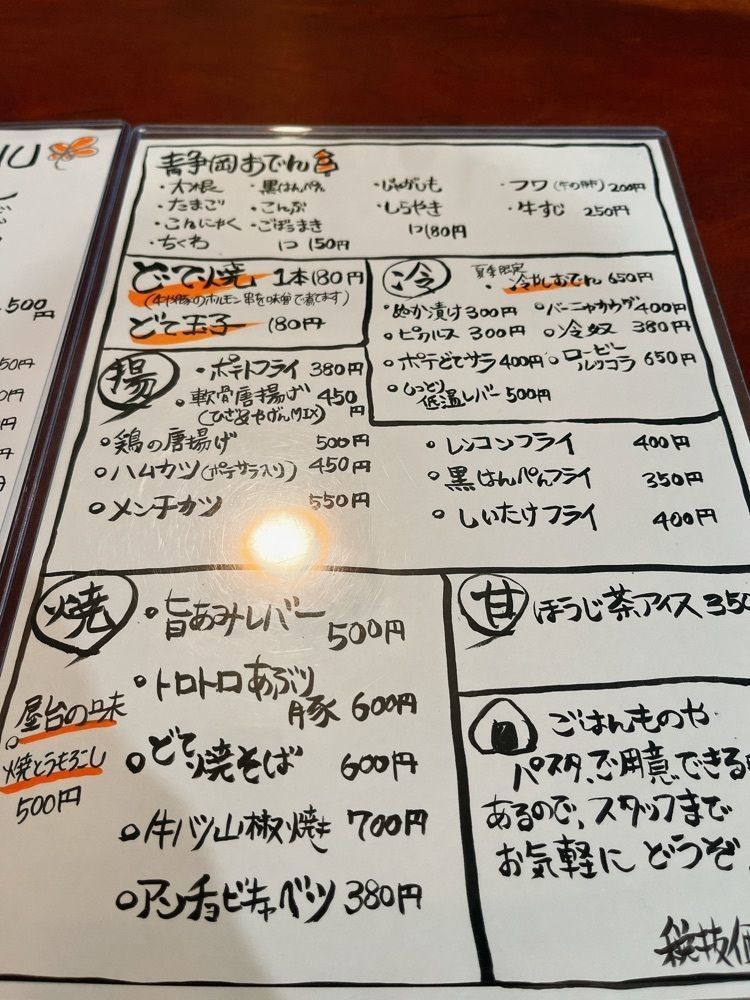 NU
500
円
50円
0円
円
円
円
青静岡おでん
・大根 ・黒はんぺん ・じゃがいも ・フワ(牛の肺) 200円
・たまご ・こんぶ ・しらやき ・牛すじ 250円
・こんにゃく ・ごぼうまき 1つ180円
・ちくわ 1つ150円
どて焼 1本180円
(牛や豚のホルモン串を味噌で煮てます)
どて玉子 180円
冷
夏季限定
・冷やしおでん 650円
ぬか漬け 300円
バーニャカウダ 400円
ピクルス 300円
冷奴 380円
ポテどてサラ 400円
ロービー
ルッコラ 650円
しっとり
低温レバー 500円
揚
・ポテトフライ 380円
軟骨唐揚げ 450円
(ひざ&やげんMIX)
鶏の唐揚げ 500円
ハムカツ(ポテサラ入り) 450円
メンチカツ 550円
レンコンフライ 400円
黒はんぺんフライ 350円
しいたけフライ 400円
焼
旨あみレバー 500円
トロトロあぶり
豚 600円
どて
焼そば 600円
牛ハツ山椒焼き 700円
アンチョビキャベツ 380円
屋台の味
焼とうもろこし
500円
甘
ほうじ茶アイス 350
ごはんものや
パスタ、ご用意できる
あるので、スタッフまで
お気軽に どうぞ
税抜価